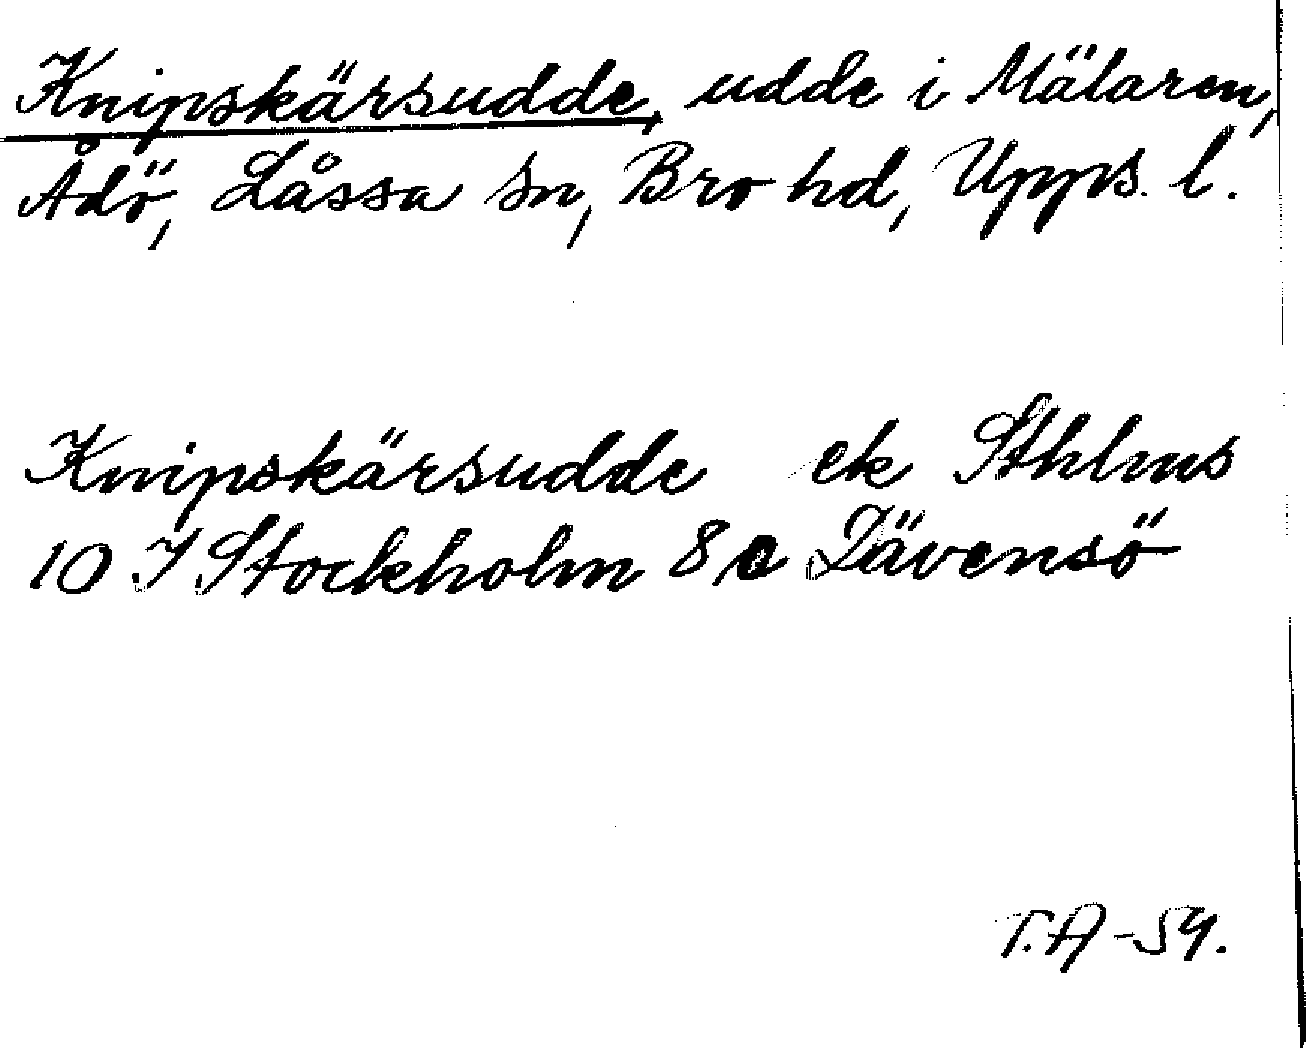 Knipskärsudde, udde i Mälaren,
Ådö, Låssa sn, Bro hd, Upps. l.
Knipskärsudde ek Sthlms
10 I Stockholm 8 c Dävensö
T.A-59.